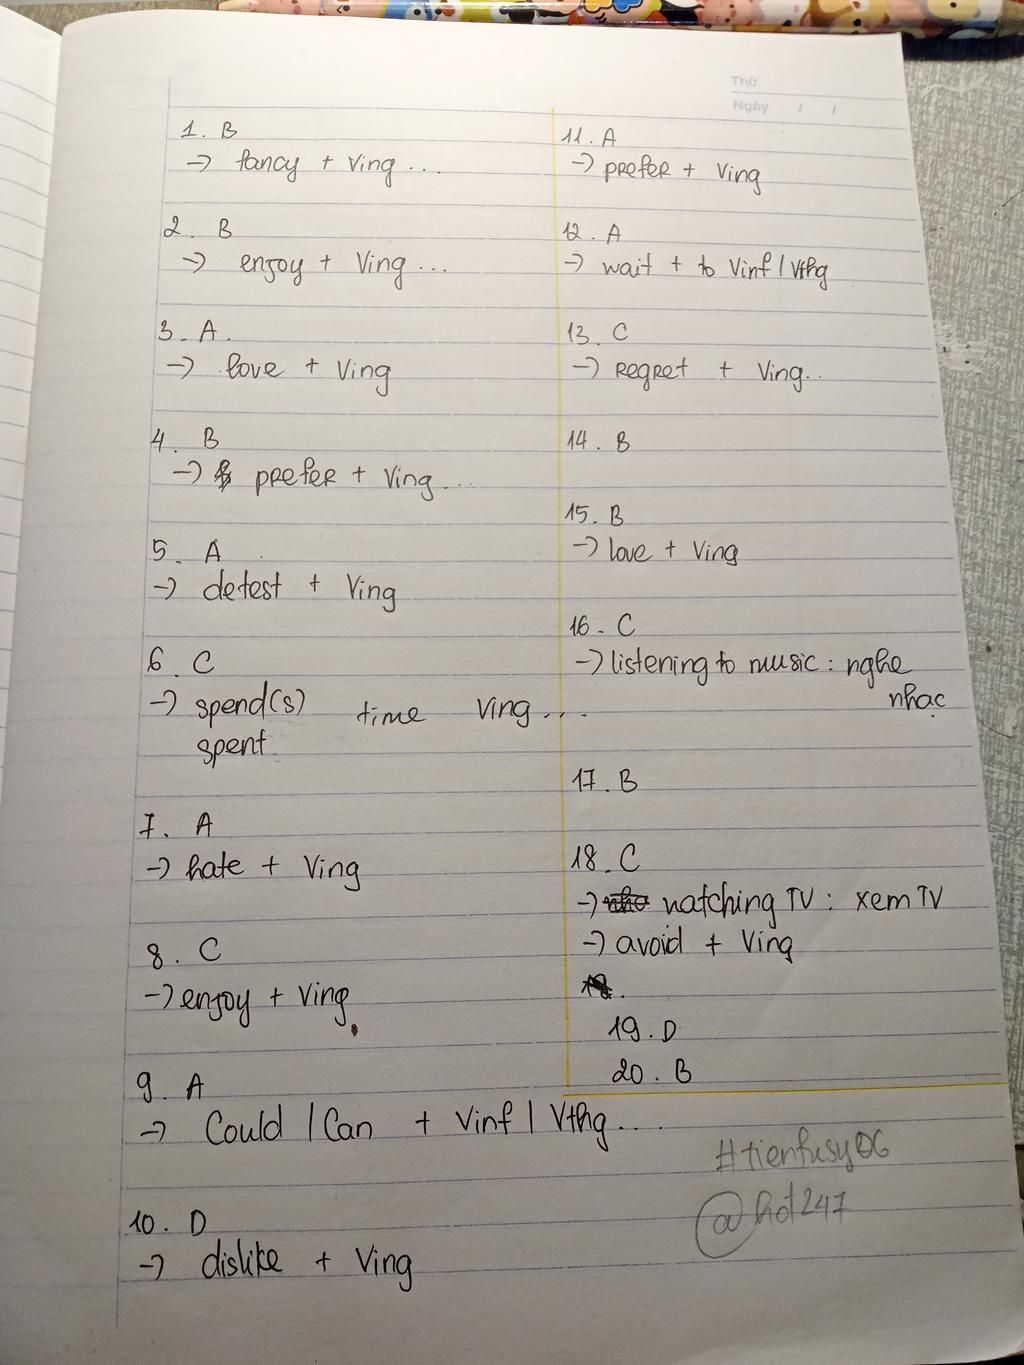 Thứ
Ngày / /
1. B
-> fancy + Ving ...
2. B
-> enjoy + Ving ...
3. A.
-> love + Ving
4. B
-> prefer + Ving ...
5. A
-> detest + Ving
6. C
-> spend(s) time Ving ...
spent
7. A
-> hate + Ving
8. C
-> enjoy + Ving
9. A
-> Could / Can + Vinf / Vthg ....
10. D
-> dislike + Ving
11. A
-> prefer + Ving
12. A
-> wait + to Vinf / Vthg
13. C
-> regret + Ving..
14. B
15. B
-> love + Ving
16. C
-> listening to music : nghe
nhạc
17. B
18. C
-> watching TV : xem TV
-> avoid + Ving
19. D
20. B
#tienfusy06
@hot247